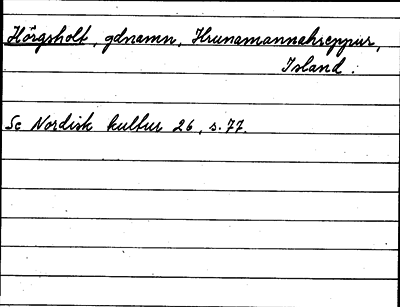 Hörgsholt, gdnamn, Hrunamannahreppur,
Island.
Se Nordisk kultur 26, s. 77.